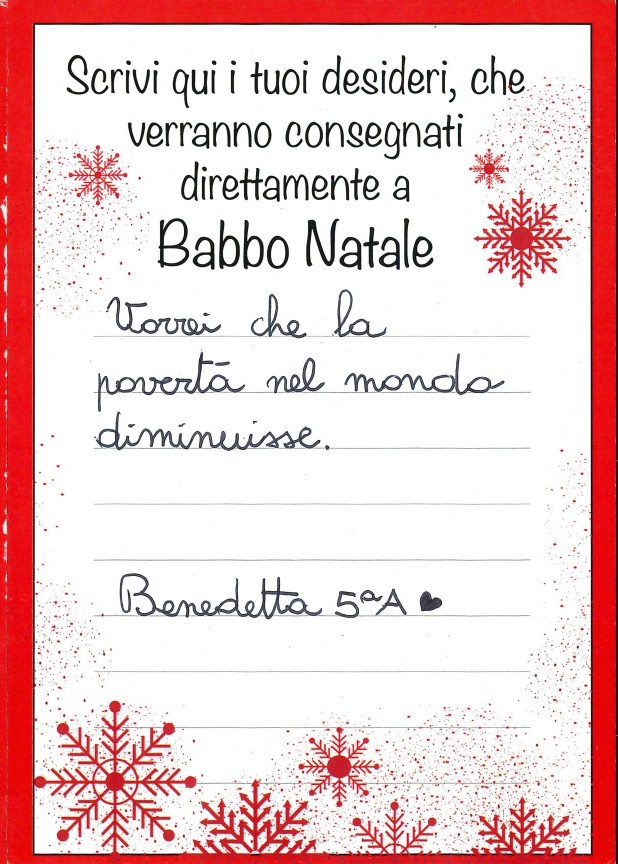 Scrivi qui i tuoi desideri, che
verranno consegnati
direttamente a
Babbo Natale
Vorrei che la
povertà nel mondo
diminuisse.
Benedetta 5ªA ♥